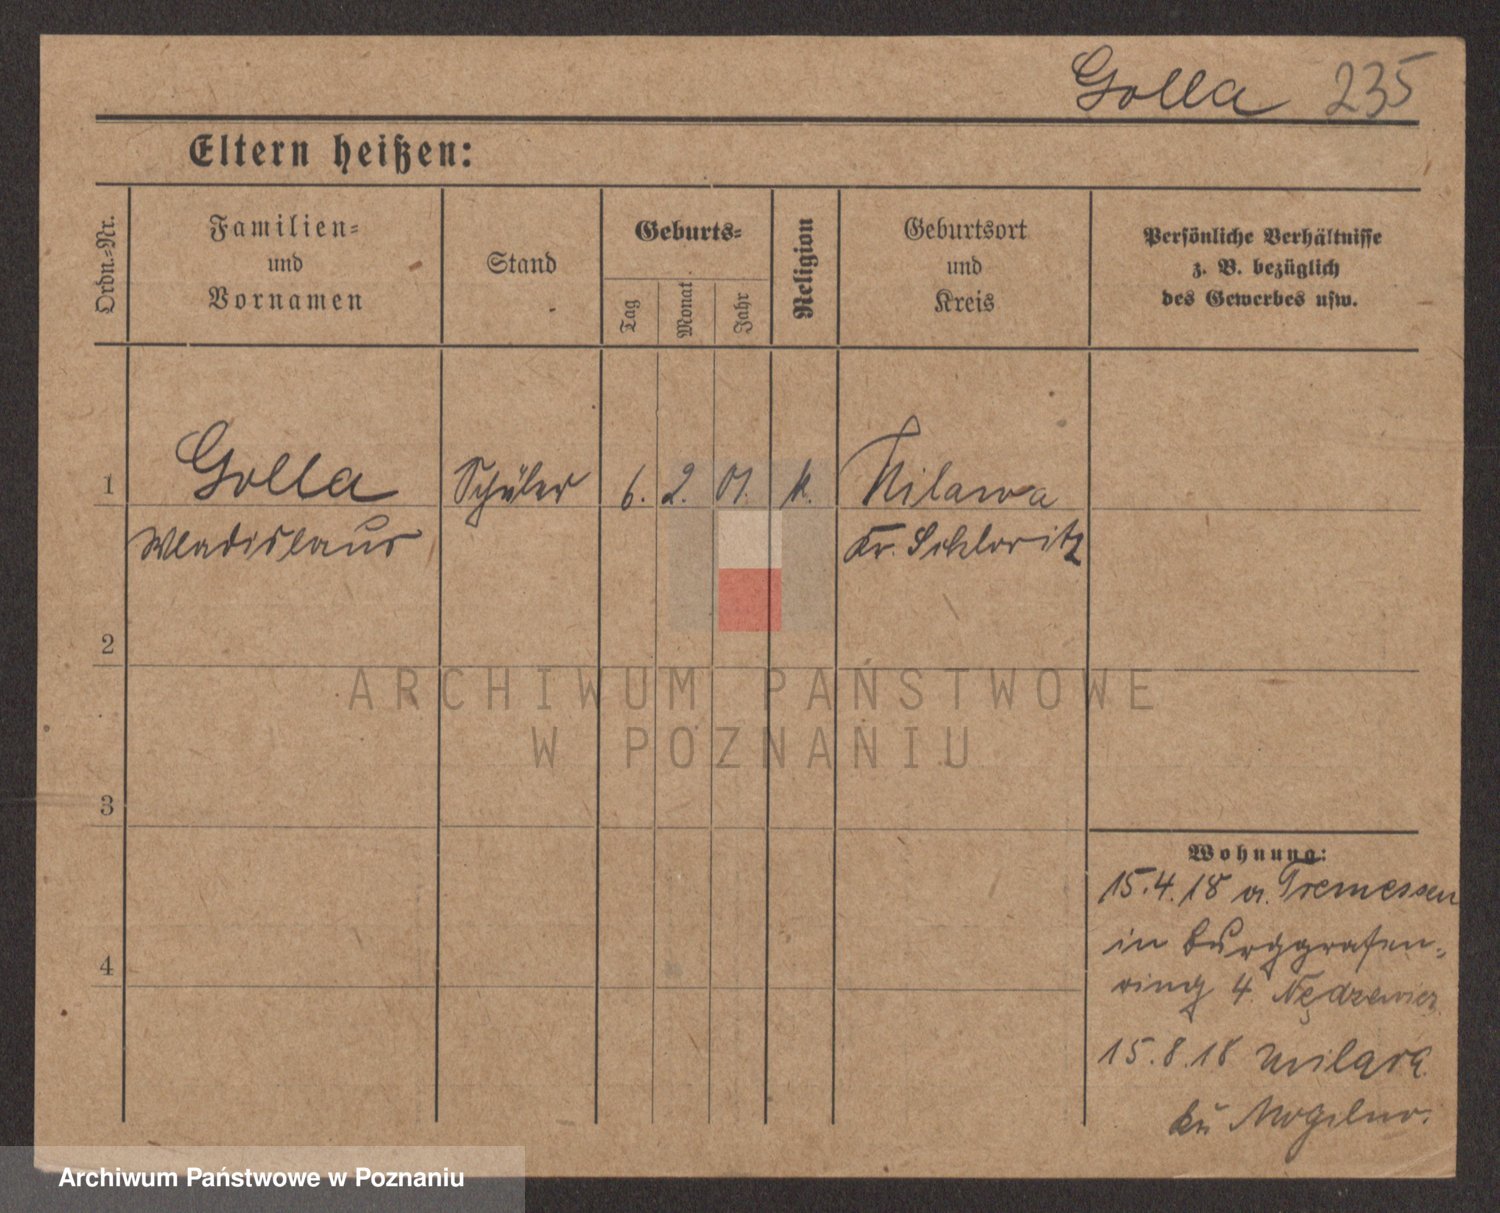 Golla 235
Eltern heißen:
Ordn.-Nr.
Familien-
und
Vornamen
Stand
Geburts-
Tag
Monat
Jahr
Religion
Geburtsort
und
Kreis
Persönliche Verhältnisse
z. B. bezüglich
des Gewerbes usw.
1
Golla
Wladislaus
Schüler
6. 2. 01. k.
Kr.
2
3
4
ARCHIWUM PAŃSTWOWE
W POZNANIU
Wohnung:
15.4.18 a. Tremessen
in Burggrafen-
ring 4
15.8.18
Mogilno.
Archiwum Państwowe w Poznaniu